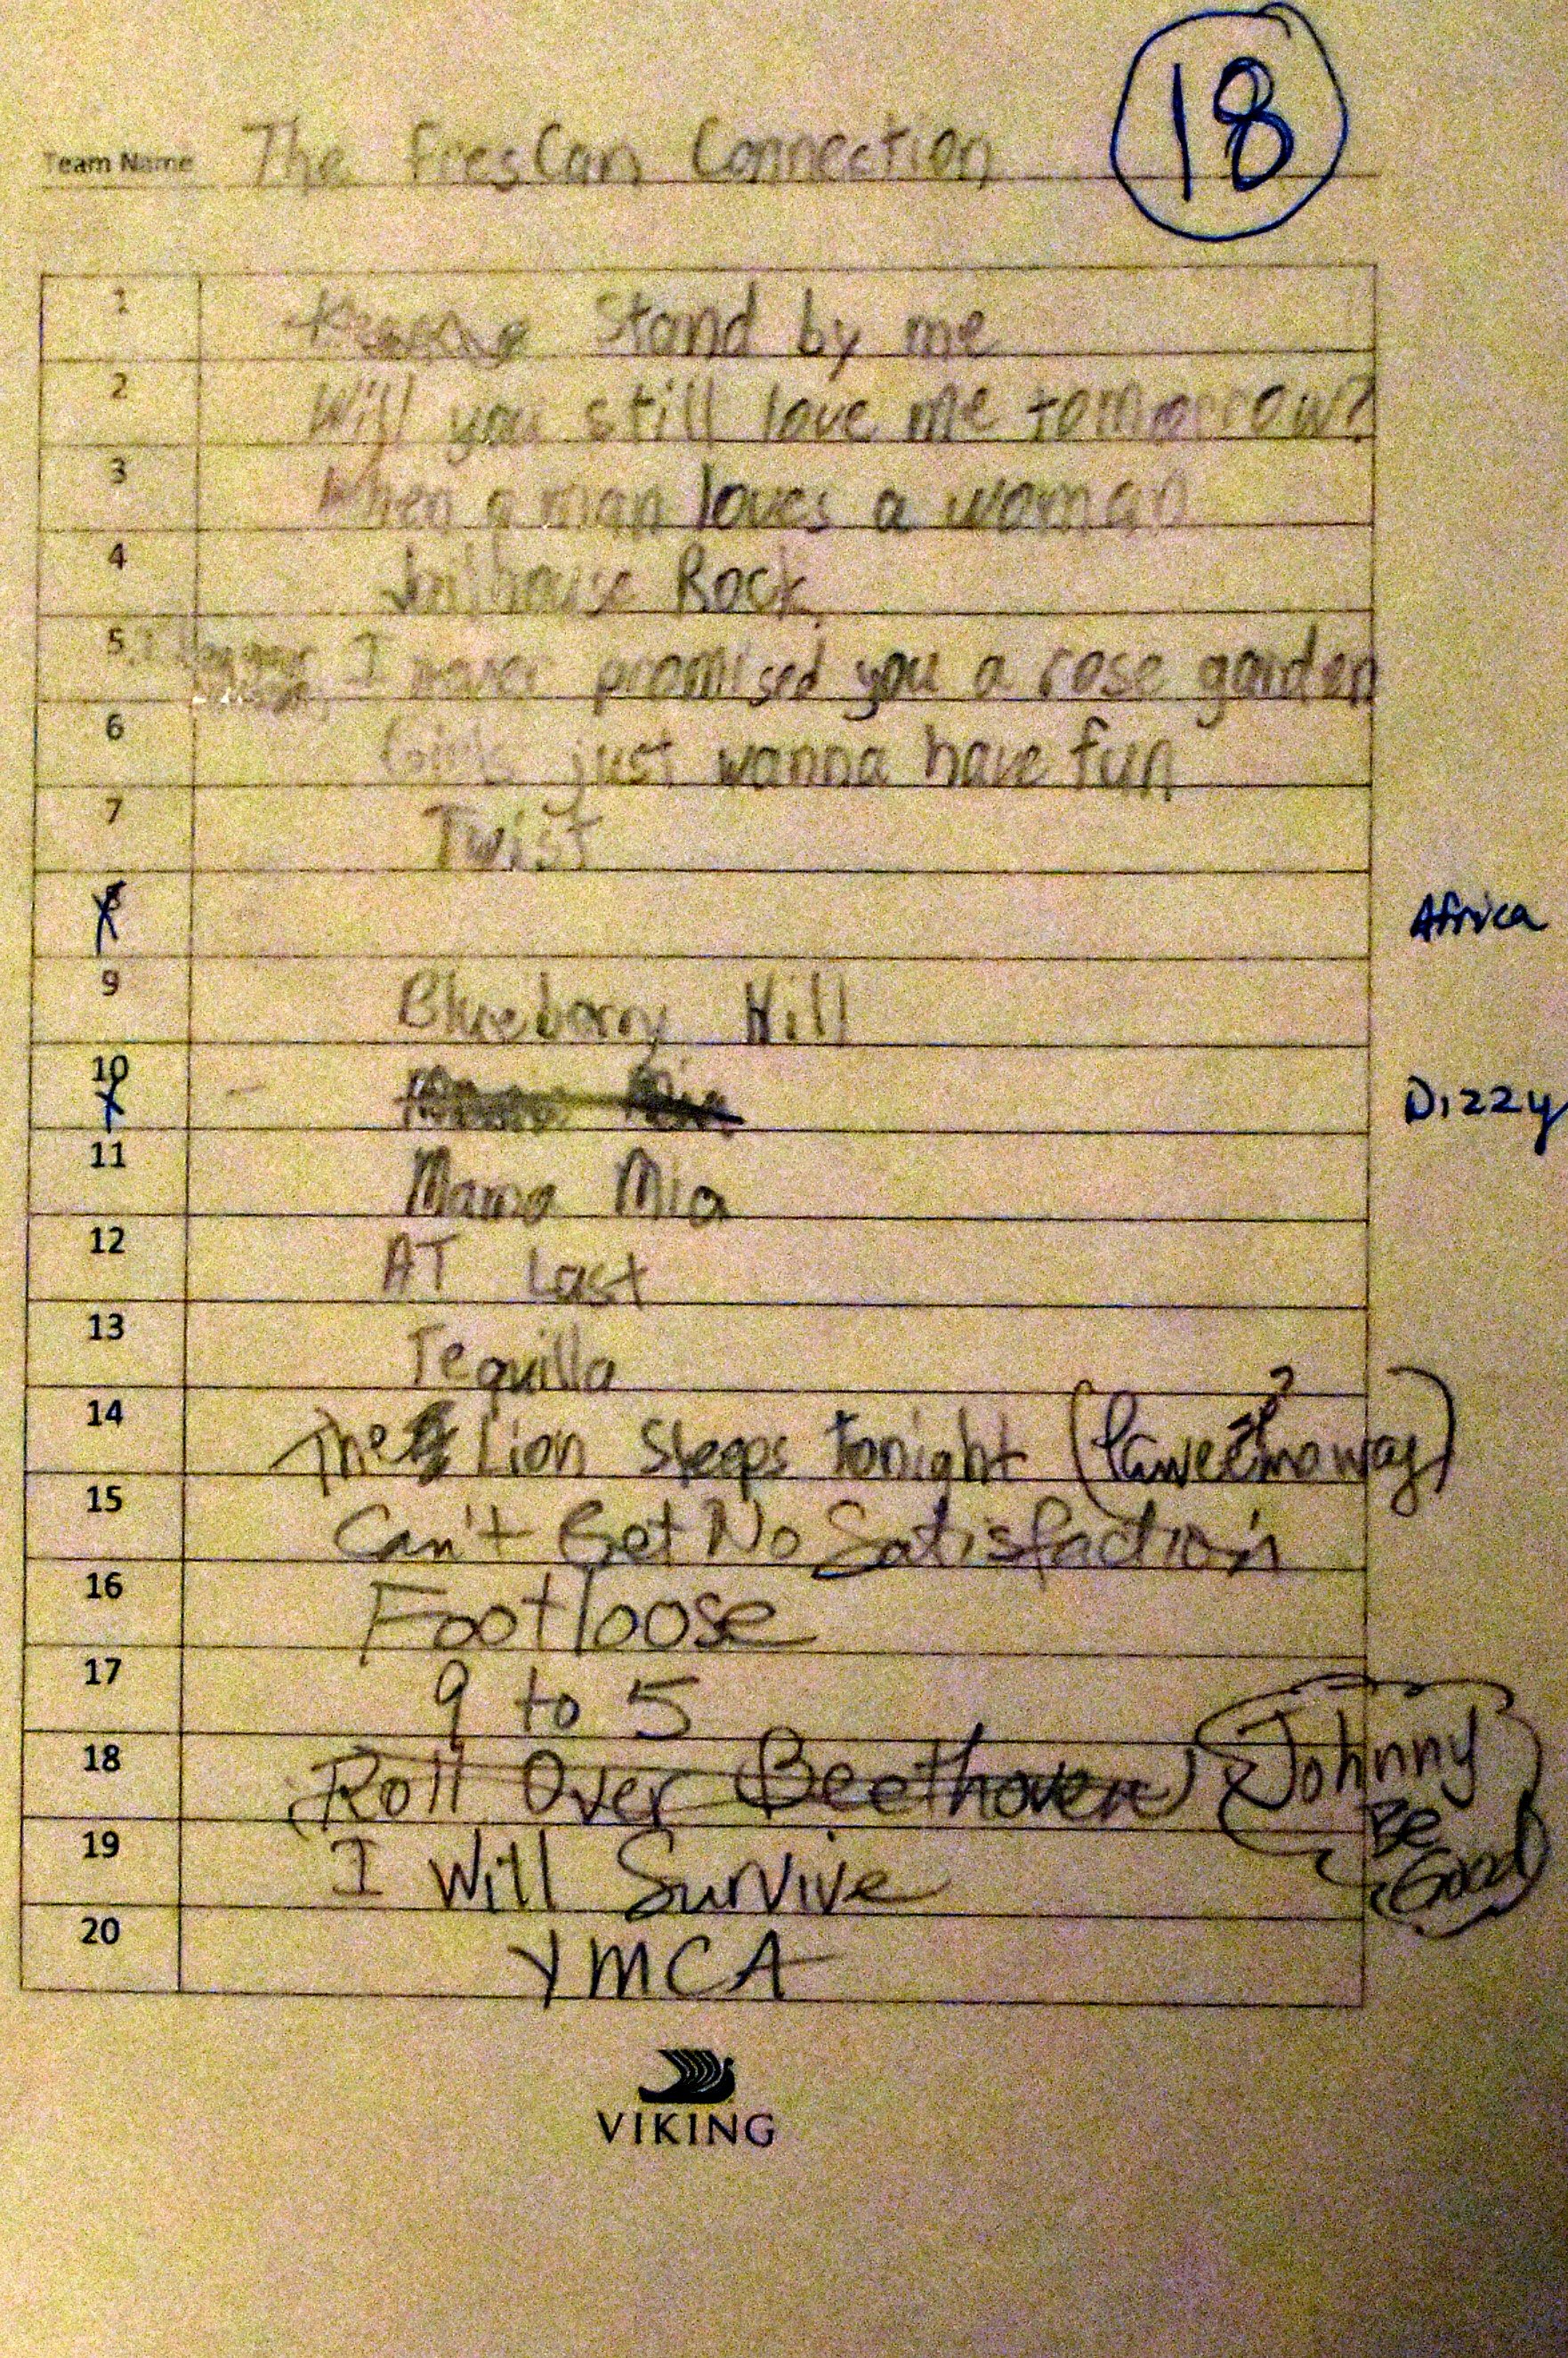 18
Team Name The FresCan Connection
1 Stand by me
2 Will you still love me tomorrow?
3 When a man loves a woman
4 Jailhouse Rock
5 I never promised you a rose garden
6 Girls just wanna have fun
7 Twist
8 Africa
9 Blueberry Hill
10 Dizzy
11 Mama Mia
12 AT Last
13 Tequilla
14 The Lion Sleeps tonight
15 Can't Get No Satisfaction
16 Footloose
17 9 to 5
18 Roll Over Beethoven Johnny
Be
Good
19 I Will Survive
20 YMCA
VIKING